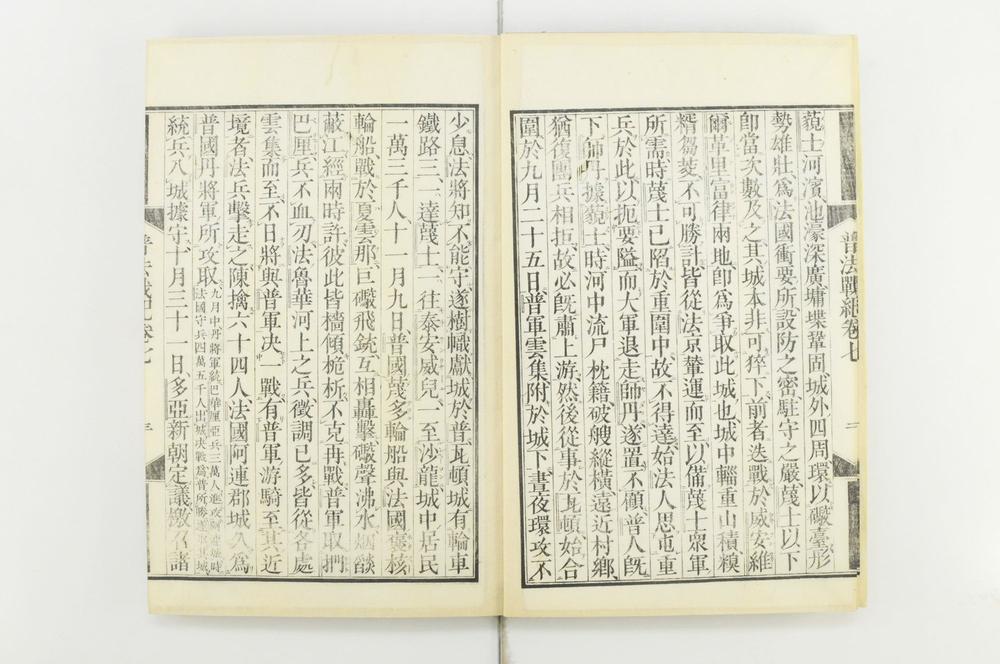 藐士河濱池濠深廣墉堞鞏固城外四周環以礮臺形
勢雄壯爲法國衝要所設防之密駐守之嚴蔑士以下
卽當次數及之其城本非可猝下前者迭戰於威安維
爾革里富律兩地卽爲爭取此城也城中輜重山積糗
糈芻茭不可勝計皆從法京輦運而至以備蔑士眾軍
所需時蔑士已陷於重圍中故不得達始法人思屯重
兵於此以扼要隘而大軍退走師丹遂置不顧普人旣
下師丹據藐士時河中流尸枕籍破艘縱橫遠近村鄉
猶復團兵相拒故必旣肅上游然後從事於瓦頓始合
圍於九月二十五日普軍雲集附於城下晝夜環攻不
普法戰紀卷七
少息法將知不能守遂樹幟獻城於普瓦頓城有輪車
鐵路三一達蔑士一往泰安威兒一至沙龍城中居民
一萬三千人十一月九日普國蔑多輪船與法國褒核
輪船戰於夏雲那巨礮飛銃互相轟擊礮聲沸水烟燄
蔽江經兩時許彼此皆檣傾桅析不克再戰普軍取捫
巴厘兵不血刃法魯華河上之兵徵調已多皆從各處
雲集而至不日將與普軍决一戰有普軍游騎至其近
境者法兵擊走之陳擒六十四人法國阿連郡城久爲
普國丹將軍所攻取九月中丹將軍統巴華厘亞兵三萬人進攻
法國守兵四萬五千人出城決戰爲普所勝遂取其城
統兵入城據守十月三十一日多亞新朝定議檄召諸